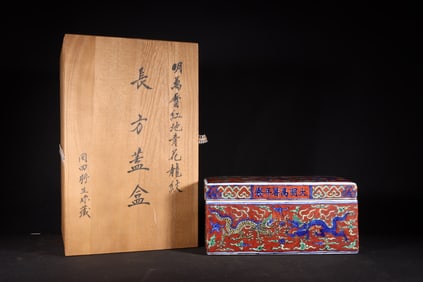 明萬曆紅地青花龍紋
長方蓋盒
岡田將生珍藏
大明萬曆年製